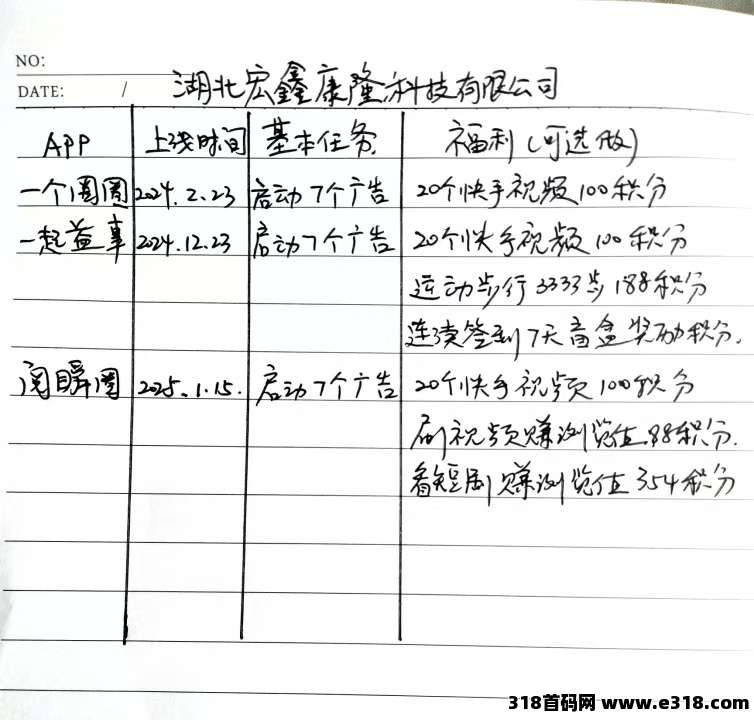 NO:
DATE: /
湖北宏鑫康隆科技有限公司
APP 上线时间 基本任务 福利(可选做)
一个圈圈 2024.2.23 启动7个广告 20个快手视频100积分
一起益事 2024.12.23 启动7个广告 20个快手视频100积分
运动步行3333步188积分
连续签到7天盲盒奖励积分.
阅瞬圈 2025.1.15. 启动7个广告 20个快手视频100积分
刷视频赚浏览值88积分.
看短剧赚浏览值354积分
318首码网 www.e318.com